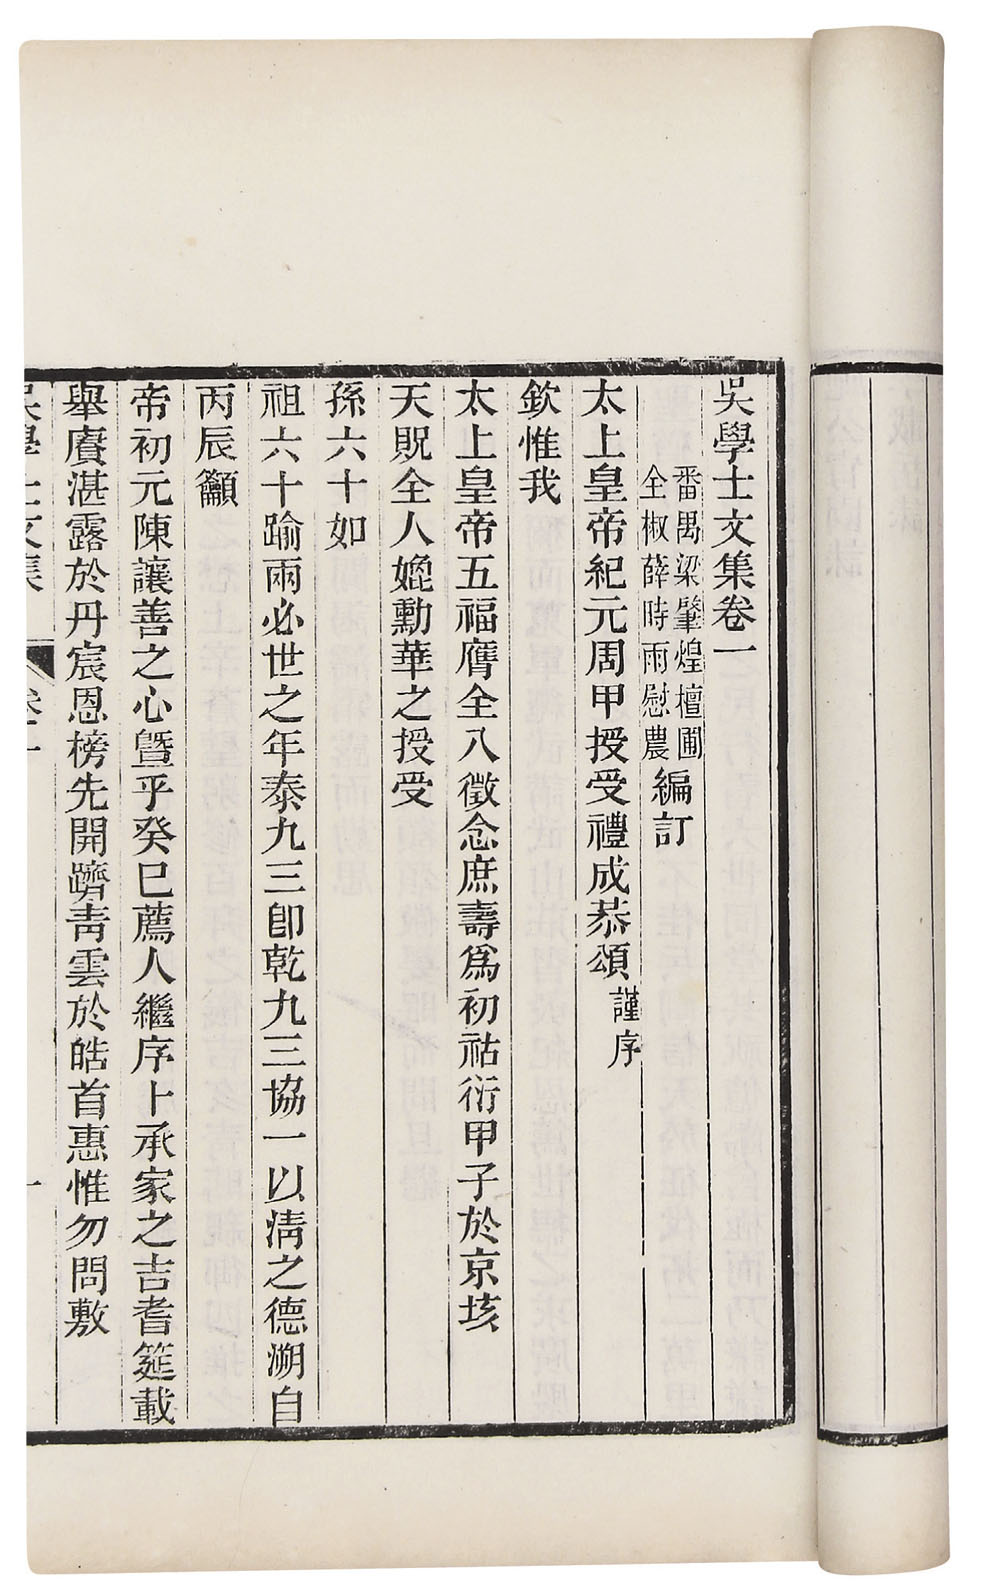 吳學士文集卷一
番禺梁肇煌檀圃
全椒薛時雨慰農
編訂
太上皇帝紀元周甲授受禮成恭頌謹序
欽惟我
太上皇帝五福膺全八徵念庶壽爲初祜衍甲子於京垓
天貺全人媲勳華之授受
孫六十如
祖六十踰兩必世之年泰九三卽乾九三協一以淸之德溯自
丙辰籲
帝初元陳讓善之心曁乎癸巳薦人繼序上承家之吉耆筵載
舉賡湛露於丹宸恩榜先開躋靑雲於皓首惠惟勿問敷
吳學士文集 卷一 一